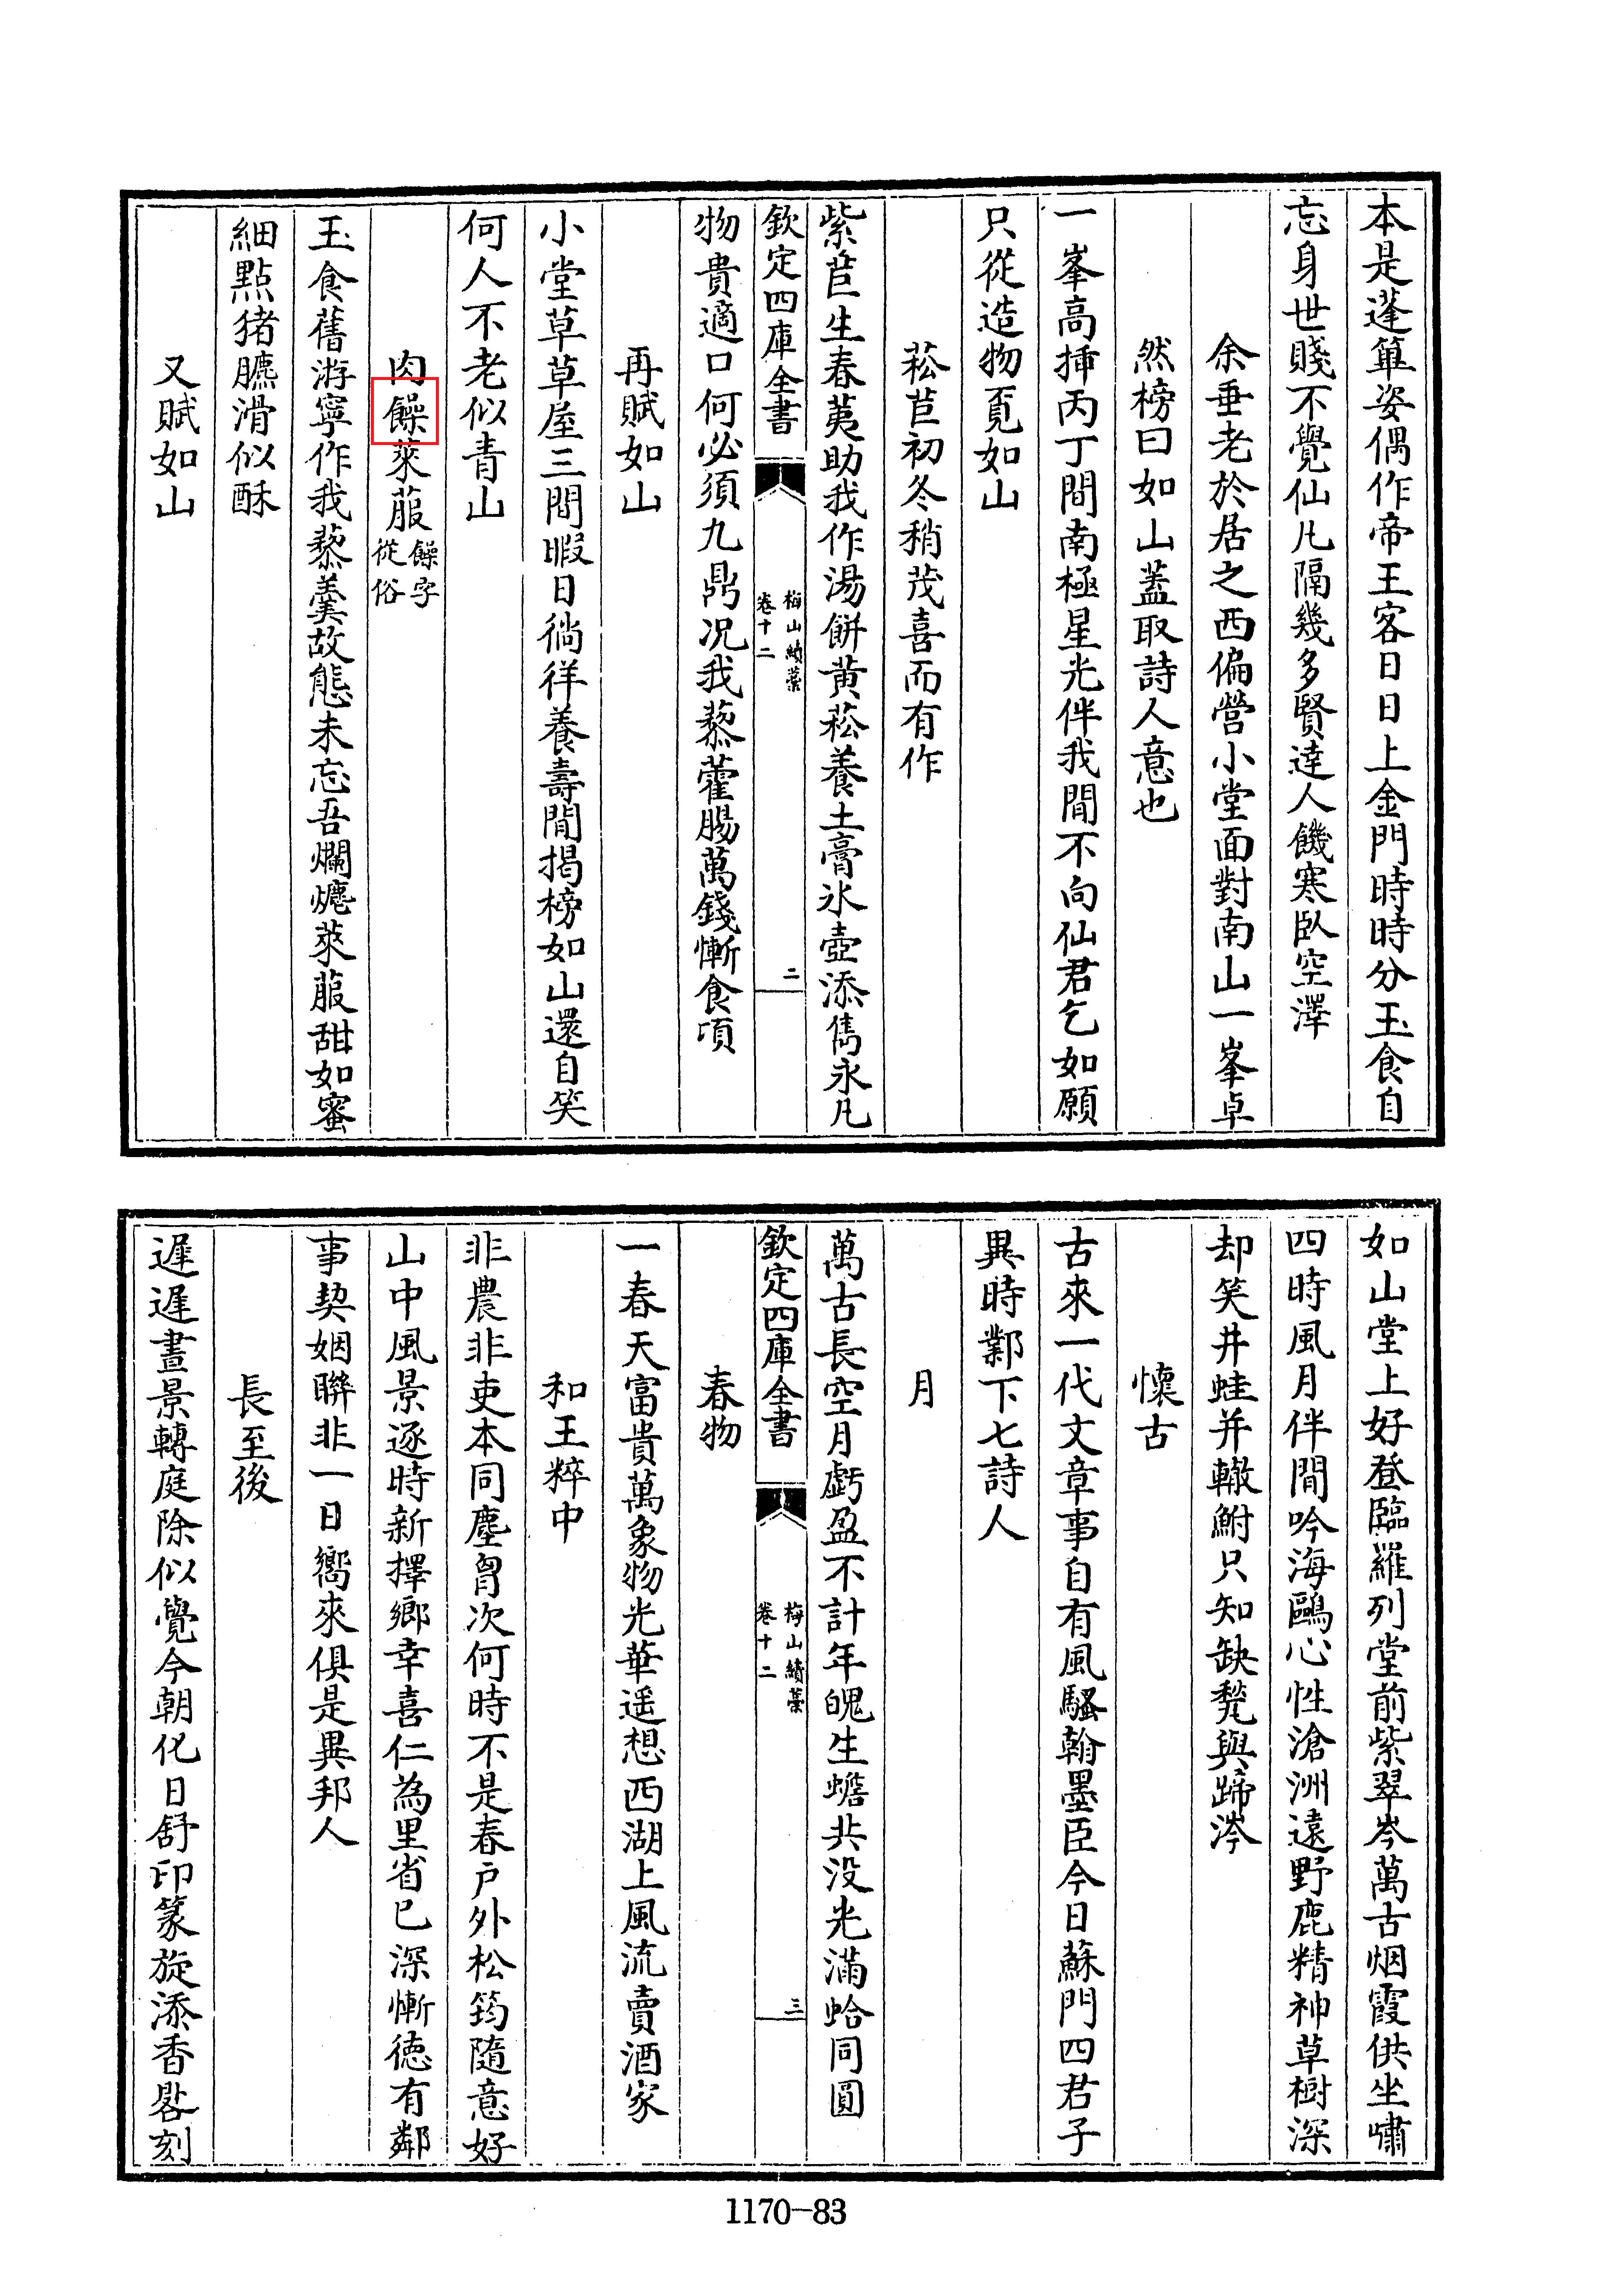 本是蓬蓽姿偶作帝王客日日上金門時時分玉食自
忘身世賤不覺仙凡隔幾多賢達人饑寒臥空澤
余垂老於居之西偏營小堂面對南山一峯卓
然榜曰如山葢取詩人意也
一峯高揷丙丁間南極星光伴我閒不向仙君乞如願
只從造物覓如山
菘苣初冬稍茂喜而有作
紫苣生春荑助我作湯餅黄菘養土膏氷壺添雋永凡
欽定四庫全書
梅山續藁
卷十二
二
物貴適口何必須九鼎况我藜藿腸萬錢慚食項
再賦如山
小堂草草屋三間暇日徜徉養壽閒揭榜如山還自笑
何人不老似青山
肉饠萊菔
饠字
從俗
玉食舊游寧作我藜羮故態未忘吾爛爊萊菔甜如蜜
細點猪臕滑似酥
又賦如山
如山堂上好登臨羅列堂前紫翠岑萬古烟霞供坐嘯
四時風月伴閒吟海鷗心性滄洲遠野鹿精神草樹深
却笑井蛙并轍鮒只知缺甃與蹄涔
懷古
古來一代文章事自有風騷翰墨臣今日蘇門四君子
異時鄴下七詩人
月
萬古長空月虧盈不計年魄生蟾共没光滿蛤同圓
欽定四庫全書
梅山續藁
卷十二
三
春物
一春天富貴萬象物光華遥想西湖上風流賣酒家
和王粹中
非農非吏本同塵胷次何時不是春户外松筠隨意好
山中風景逐時新擇鄉幸喜仁為里省已深慚徳有鄰
事契姻聨非一日嚮來俱是異邦人
長至後
遲遲晝景轉庭除似覺今朝化日舒印篆旋添香晷刻
1170-83